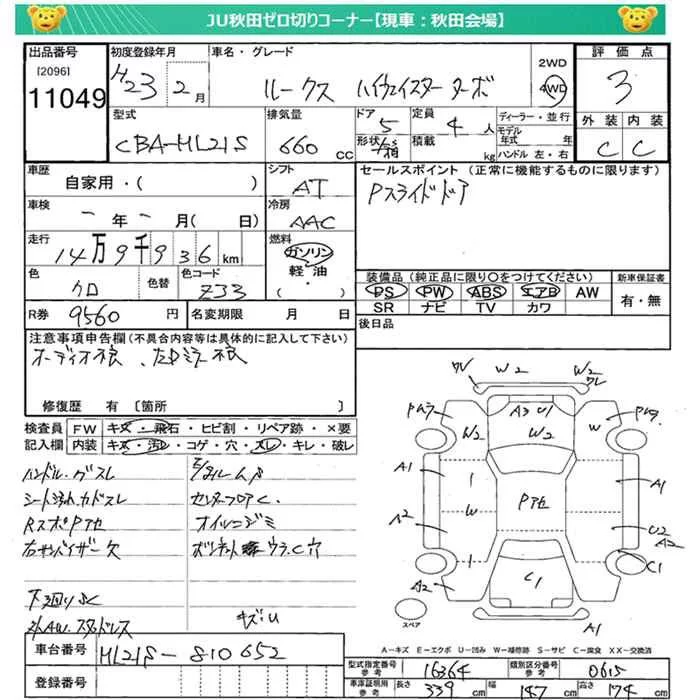 JU秋田ゼロ切りコーナー【現車：秋田会場】
出品番号 [2096] 11049
初度登録年月 H23年 2月
車名・グレード ルークス ハイウェイスター ターボ
2WD 4WD
評価点 3
外装 内装 C C
型式 CBA-ML21S
排気量 660 cc
ドア 5 形状
定員 4 人
積載 kg
ディーラー・並行
モデル年式 年
ハンドル 左・右
車歴 自家用・( )
シフト AT
車検 ー年ー月( 日)
冷房 AAC
走行 14万9千936km
燃料 ガソリン・軽油・( )
色 クロ
色替
色コード Z33
R券 9560 円
名変期限 月 日
セールスポイント（正常に機能するものに限ります）
Pスライドドア
装備品（純正品に限り〇をつけてください）
PS PW ABS エアB AW
SR ナビ TV カワ
新車保証書 有・無
後日品
注意事項申告欄(不具合内容等は具体的に記入して下さい)
オーディオ良、
修復歴 有 〔箇所 〕
検査員記入欄
FW キズ・飛石・ヒビ割・リペア跡・×要
内装 キズ・汚レ・コゲ・穴・スレ・キレ・破レ
ハンドル・グスレ
Rスポ
右サンバイザー欠
センターフロアC.
オイルニジミ
ボンネット ウラC穴
下廻りSC
キズ:U
W2
W2
A3 U1
W2
W2
W
A1
A1
W
Pアセ
A2
U2
A2
A2
C1
C1
A1
スペア
A-キズ E-エクボ U-凹み W-補修跡 S-サビ C-腐食 XX-交換済
車台番号 ML21S-810652
登録番号
型式指定番号 参考 16364
類別区分番号 参考 0615
車庫証明用 参考 長さ 339 cm 幅 147 cm 高さ 174 cm